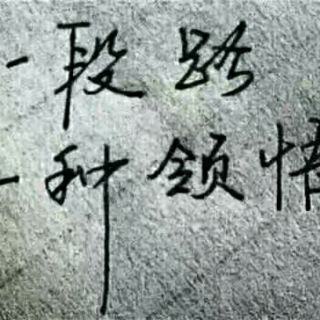 一段路
一种领悟